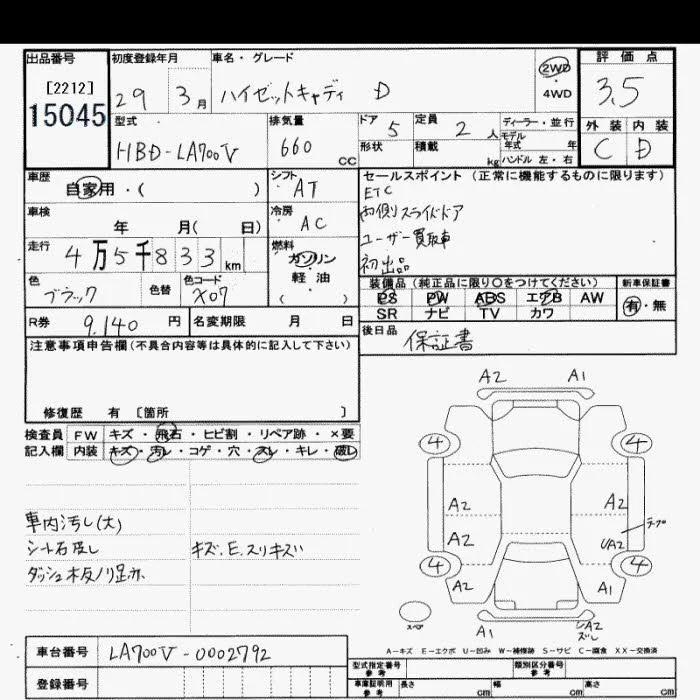 出品番号 初度登録年月 車名・グレード 2WD ・ 4WD 評価点
[2212]
15045
29 3月 ハイゼットキャディ D 3.5
型式 排気量 ドア 5 定員 2人 ディーラー・並行 外装 内装
HBD-LA700V 660 CC 形状 積載 kg モデル年式 年 C D
ハンドル 左・右
車歴 自家用・( ) シフト AT セールスポイント (正常に機能するものに限ります)
ETC
車検 年 月( 日) 冷房 AC 両側スライドドア
ユーザー買取車
走行 4万5千833km 燃料 ガソリン 初出品
軽油
( )
色 ブラック 色替 色コード X07
装備品 (純正品に限り○をつけてください) 新車保証書
PS PW ABS エアB AW 有・無
SR ナビ TV カワ
R券 9,140 円 名変期限 月 日
後日品 保証書
注意事項申告欄(不具合内容等は具体的に記入して下さい)
修復歴 有 [箇所 ]
検査員 FW キズ・飛石・ヒビ割・リペア跡・×要
記入欄 内装 キズ・汚レ・コゲ・穴・スレ・キレ・破レ
車内汚し(大)
シート石皮し キズ.E.スリキズ
ダッシュ板ノリ跡
A2 A1
4 4
A2 A2
テープ
A2 UA2
4 4
A2 A1
スペア
A1 UA2
ズレ
A-キズ E-エクボ U-凹み W-補修跡 S-サビ C-腐食 XX-交換済
車台番号 LA700V-0002792
登録番号
型式指定番号 参考 類別区分番号 参考
車庫証明用 参考 長さ cm 幅 cm 高さ cm